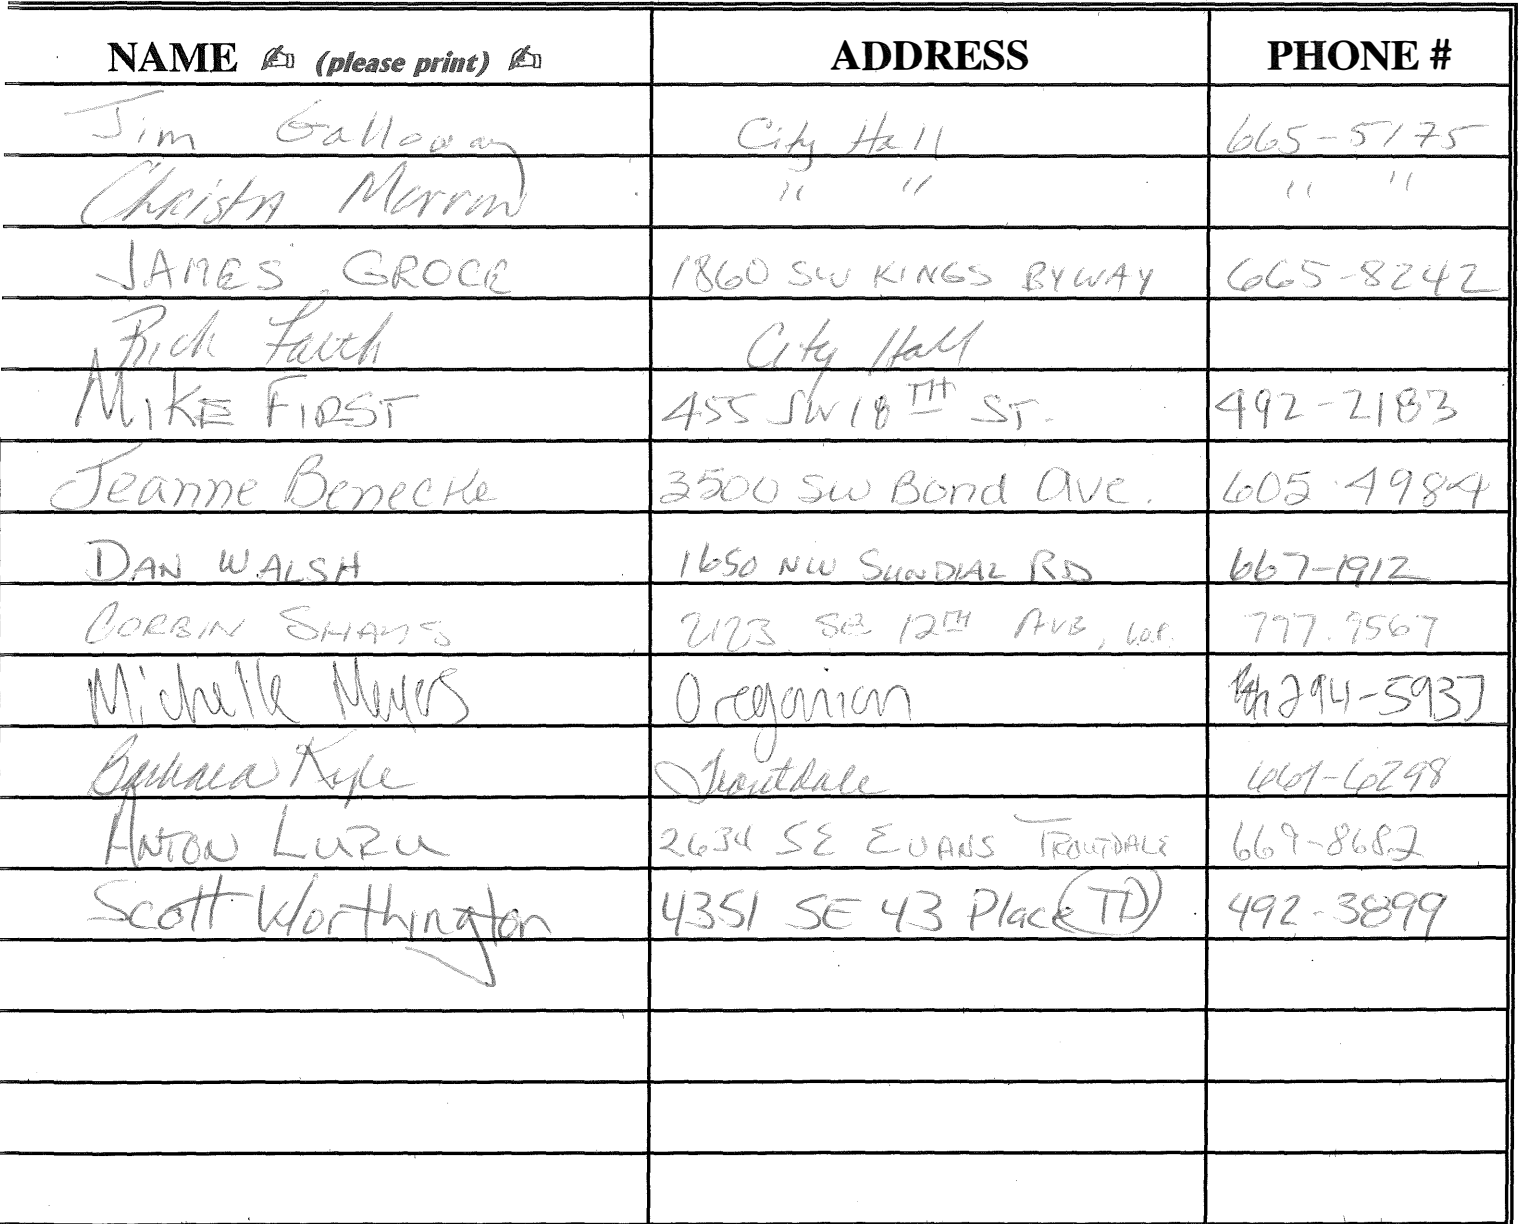 NAME (please print) ADDRESS PHONE #
Jim Galloway City Hall 665-5175
Christa Morrow " " " "
JAMES GROCE 1860 SW KINGS BYWAY 665-8242
Rick Faith City Hall
MIKE FIRST 455 SW 18TH ST. 492-2183
Jeanne Benecke 3500 SW Bond Ave. 605-4984
DAN WALSH 1650 NW SUNDIAL RD 667-1912
CORBIN 2123 SE 12TH AVE, 797.9567
Michelle Meyers Oregonian 294-5937
Barbara Kyle Troutdale
ANTON 2634 SE EVANS TROUTDALE 669-8682
Scott Worthington 4351 SE 43 Place TD 492-3899